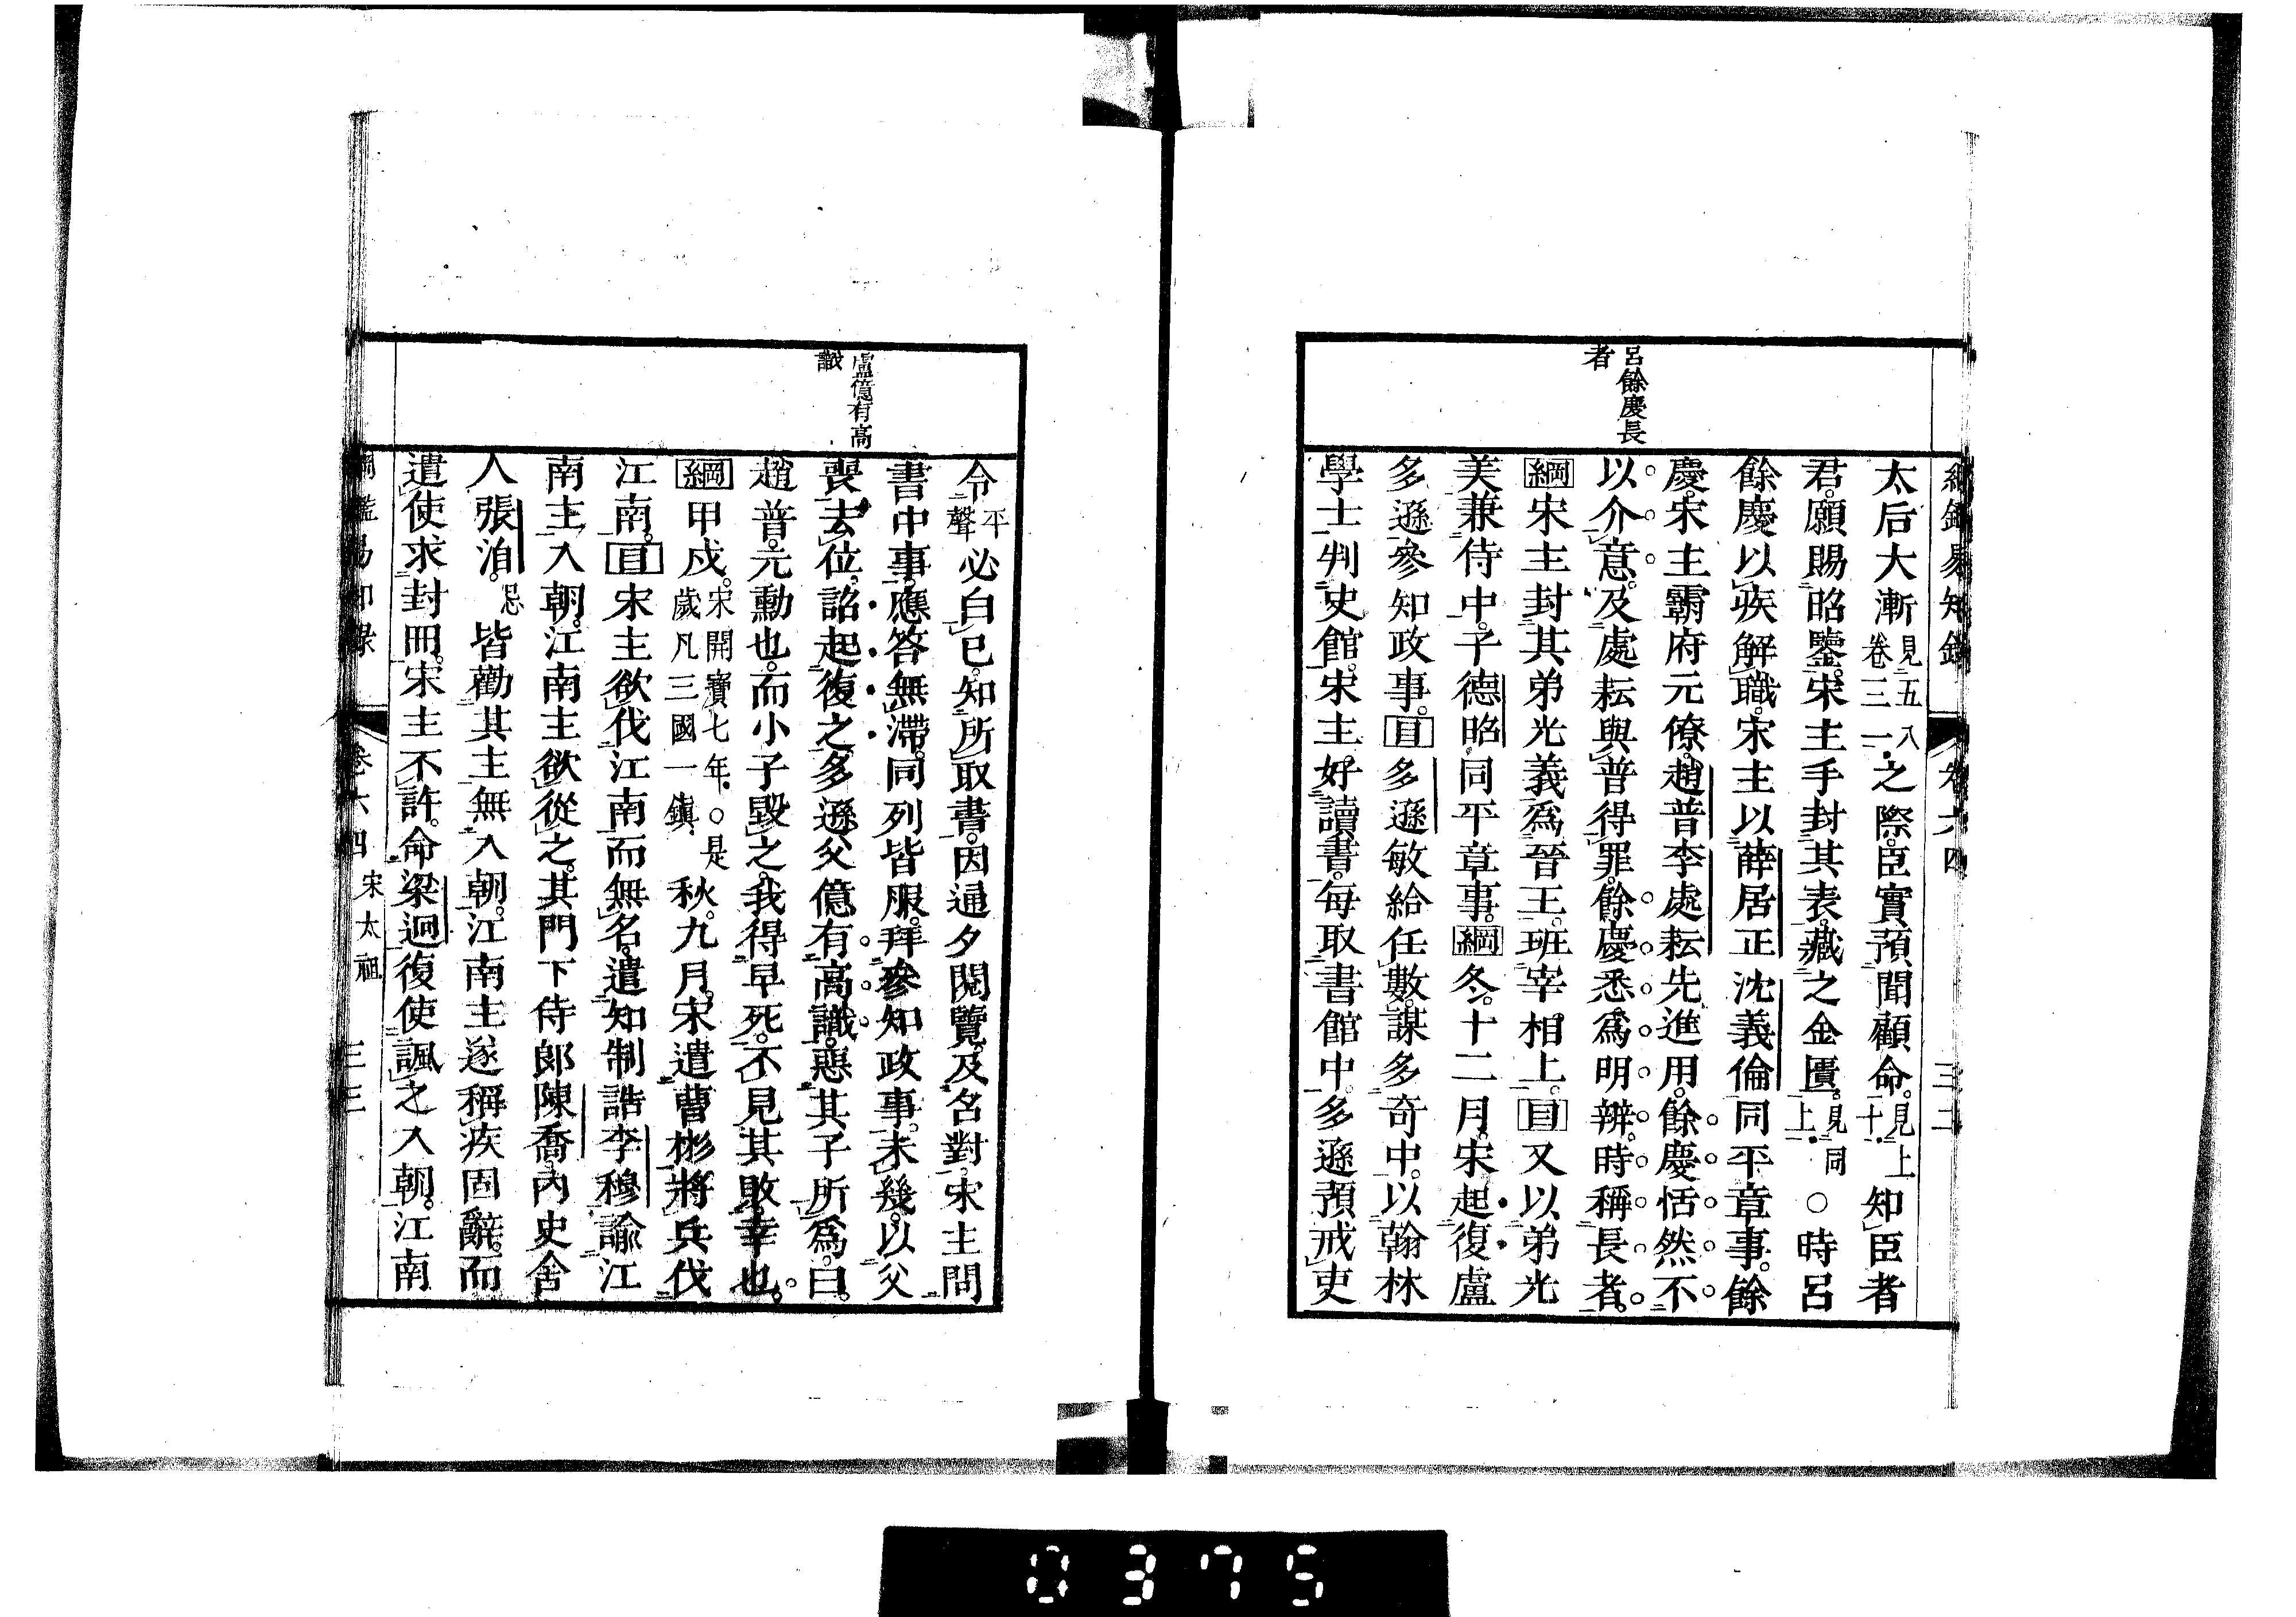 綱鑑易知錄 卷六四 三二
呂餘慶長
者
太后大漸見五八卷三一之際。臣實預聞顧命。見上十一知臣者
君。願賜昭鑒。宋主手封其表。藏之金匱。見同上○時呂
餘慶以疾解職。宋主以薛居正沈義倫同平章事。餘
慶宋主霸府元僚。趙普李處耘先進用。餘慶恬然不
以介意。及處耘與普得罪。餘慶悉爲明辨。時稱長者。
綱宋主封其弟光義爲晉王。班宰相上。目又以弟光
美兼侍中。子德昭同平章事。綱冬。十二月。宋起復盧
多遜參知政事。目多遜敏給任數。謀多奇中。以翰林
學士判史館。宋主好讀書。每取書館中。多遜預戒吏
盧億有高
識
令平聲必白已。知所取書。因通夕閱覽。及名對。宋主問
書中事。應答無滯。同列皆服。拜參知政事。未幾。以父
喪去位。詔起復之。多遜父億有高識。惡其子所爲。曰。
趙普。元勳也。而小子毀之。我得早死。不見其敗。幸也。
綱甲戍。宋開寶七年。○是歲凡三國一鎮。秋。九月。宋遣曹彬將兵伐
江南。目宋主欲伐江南而無名。遣知制誥李穆諭江
南主入朝。江南主欲從之。其門下侍郞陳喬。內史舍
人張洎。忌皆勸其主無入朝。江南主遂稱疾固辭。而
遣使求封冊。宋主不許。命梁迥復使諷之入朝。江南
綱鑑易知錄 卷六四 宋太祖 三三
0375